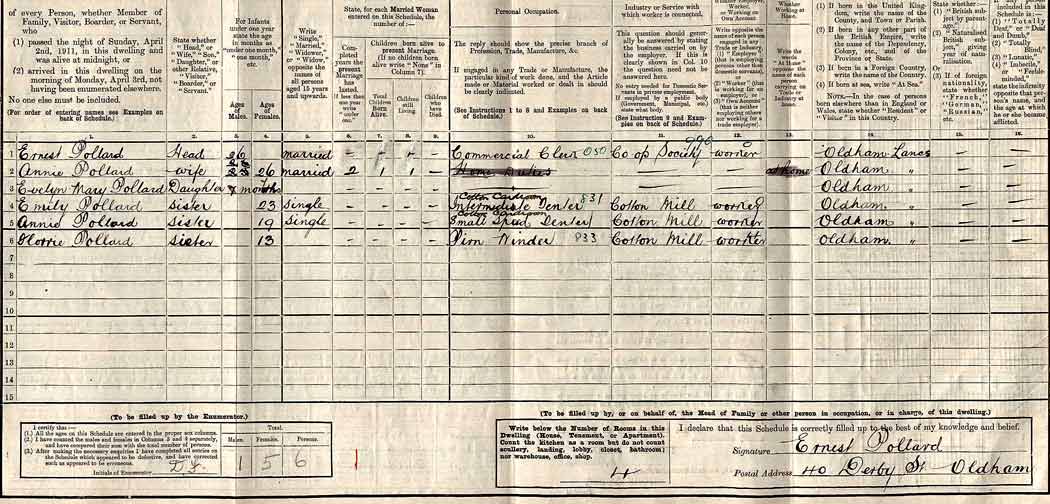 of every Person, whether Member of
Family, Visitor, Boarder, or Servant,
who
(1) passed the night of Sunday, April
2nd, 1911, in this dwelling and
was alive at midnight, or
(2) arrived in this dwelling on the
morning of Monday, April 3rd, not
having been enumerated elsewhere.
No one else must be included.
(For order of entering names see Examples on
back of Schedule.)
State whether
"Head," or
"Wife," "Son,"
"Daughter," or
other Relative,
"Visitor,"
"Boarder," or
"Servant."
For Infants
under one year
state the age
in months as
"under one
month," "one
month,"
etc.
Ages
of
Males.
Ages
of
Females.
Write
"Single,"
"Married,"
"Widower,"
or "Widow,"
opposite the
names of
all persons
aged 15 years
and upwards.
State, for each Married Woman
entered on this Schedule, the
number of:—
Completed
years the
present
Marriage
has
lasted.
If less than
one year
write
"under
one."
Children born alive to
present Marriage.
(If no children born
alive write "None" in
Column 7).
Total
Children
Born
Alive.
Children
still
Living.
Children
who
have
Died.
Personal Occupation.
The reply should show the precise branch of
Profession, Trade, Manufacture, &c.
If engaged in any Trade or Manufacture, the
particular kind of work done, and the Article
made or Material worked or dealt in should
be clearly indicated.
(See Instructions 1 to 8 and Examples on back
of Schedule.)
Industry or Service with
which worker is connected.
This question should gener-
ally be answered by stating
the business carried on by
the employer. If this is
clearly shown in Col. 10
the question need not be
answered here.
No entry needed for Domestic Ser-
vants in private employment.
If employed by a public body
(Government, Municipal, etc.)
state what body.
(See Instruction 9 and Exam-
ples on back of Schedule.)
Write opposite the
name of each person
engaged in any
Trade or Industry,
(1) "Employer"
(that is employing
persons other than
domestic servants),
or
(2) "Worker" (that
is working for an
employer), or
(3) "Own Account"
(that is neither
employing others
nor working for a
trade employer).
Whether
Working at
Home.
Write the
words
"At Home"
opposite the
name of
each person
carrying on
Trade or
Industry
at home.
(1) If born in the United King-
dom, write the name of the
County, and Town or Parish.
(2) If born in any other part of
the British Empire, write
the name of the Dependency,
Colony, etc., and of the
Province or State.
(3) If born in a Foreign Country,
write the name of the Country.
(4) If born at sea, write "At Sea."
NOTE.—In the case of persons
born elsewhere than in England or
Wales, state whether "Resident" or
"Visitor" in this Country.
State whether:—
(1) "British sub-
ject by parent-
age."
(2) "Naturalised
British sub-
ject," giving
year of natu-
ralisation.
Or
(3) If of foreign
nationality,
state whether
"French,"
"German,"
"Russian,"
etc.
included in this
Schedule is:—
(1) "Totally
Deaf," or "Deaf
and Dumb,"
(2) "Totally
Blind,"
(3) "Lunatic,"
(4) "Imbecile,"
or "Feeble-
minded,"
state the infirmity
opposite that per-
son's name, and
the age at which
he or she became
afflicted.
1. 2. 3. 4. 5. 6. 7. 8. 9. 10. 11. 12. 13. 14. 15. 16.
1 Ernest Pollard Head 26 married – – – – Commercial Clerk 050 Co op Society 990 worker Oldham Lancs — —
2 Annie Pollard wife 26 married 2 1 1 – Home Duties — — at home Oldham " — —
3 Evelyn Mary Pollard Daughter 7 months — — Oldham "
4 Emily Pollard Sister 23 Single – – – – Cotton Cardroom Intermediate Tenter 831 Cotton Mill worker Oldham " — —
5 Annie Pollard Sister 19 Single – – – – Cotton Cardroom Small Speed Tenter Cotton Mill worker Oldham " — —
6 Florrie Pollard Sister 13 – – – – Pirn Winder 833 Cotton Mill worker Oldham " — —
7
8
9
10
11
12
13
14
15
(To be filled up by the Enumerator.)
I certify that:—
(1.) All the ages on this Schedule are entered in the proper sex columns.
(2.) I have counted the males and females in Columns 3 and 4 separately,
and have compared their sum with the total number of persons.
(3.) After making the necessary enquiries I have completed all entries on
the Schedule which appeared to be defective, and have corrected
such as appeared to be erroneous.
Initials of Enumerator
Total.
Males. Females. Persons.
1 5 6
(To be filled up by, or on behalf of, the Head of Family or other person in occupation, or in charge, of this dwelling.)
Write below the Number of Rooms in this
Dwelling (House, Tenement, or Apartment).
Count the kitchen as a room but do not count
scullery, landing, lobby, closet, bathroom;
nor warehouse, office, shop.
4
I declare that this Schedule is correctly filled up to the best of my knowledge and belief.
Signature Ernest Pollard
Postal Address 40 Derby St Oldham